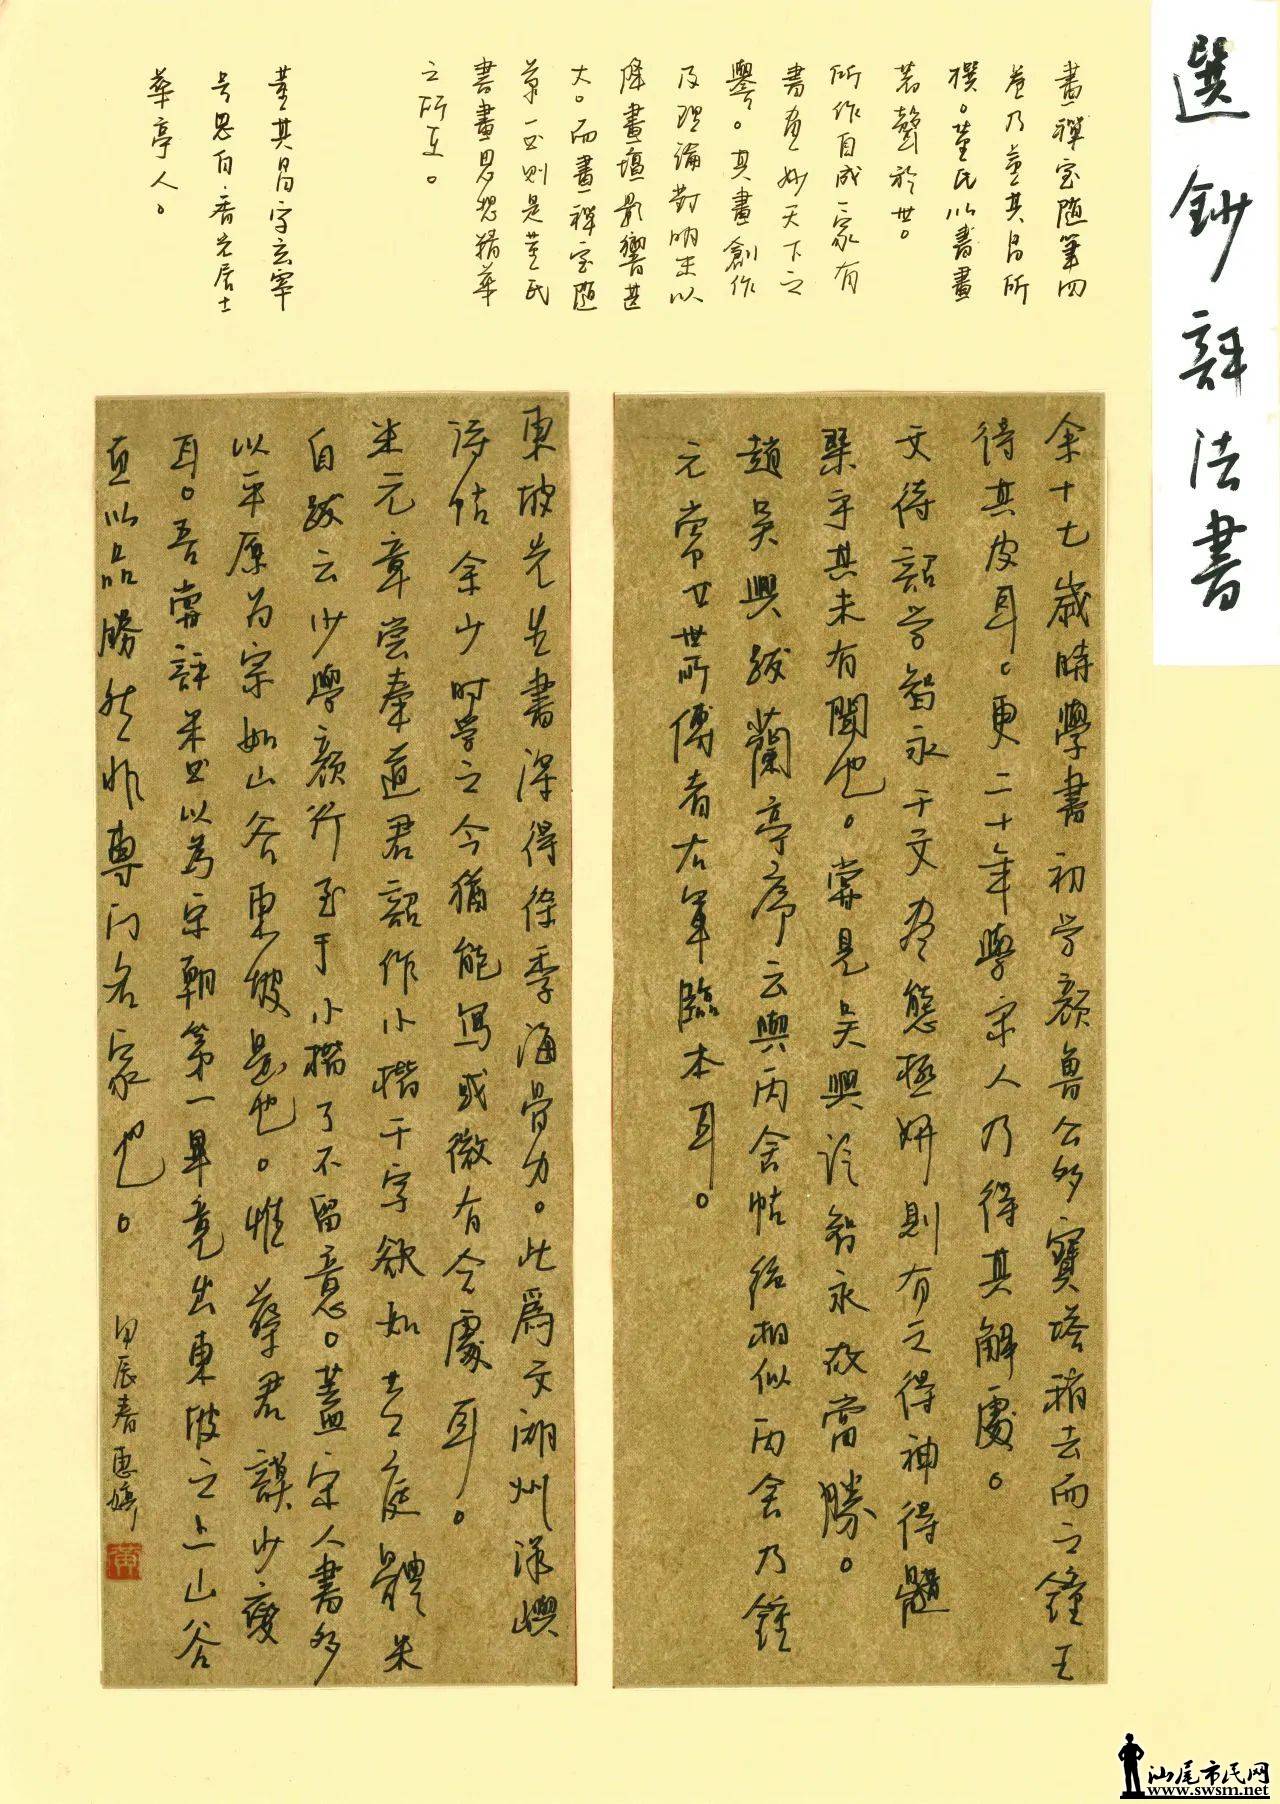 選鈔評法書
畫禪室隨筆四
卷乃董其昌所
撰。董氏以書畫
著聲於世。
所作自成一家有
書畫妙天下之
譽。其畫創作
及理論對明末以
降畫壇影響甚
大。而畫禪室隨
筆一书則是董氏
書畫思想精華
之所在。
董其昌字玄宰
号思白·香光居士
華亭人。
余十七歲時學書初学顏魯公多寶塔稍去而之鍾王
得其皮耳。更二十年學宋人乃得其解處。
文待詔学智永千文尽態極妍則有之得神得髓
槩乎其未有聞也。嘗見吳興論智永故當勝。
趙吳興跋蘭亭序云與丙舍帖絕相似丙舍乃鍾
元常廿世所傳者右軍臨本耳。
東坡先生書深得徐季海骨力。此爲文湖州洋嶼
诗帖余少时学之今猶能寫或微有合處耳。
米元章嘗奉道君詔作小楷千字欲如黄庭體米
自跋云少學顏行至于小楷了不留意。蓋宋人書多
以平原为宗如山谷東坡是也。惟蔡君謨少變
耳。吾嘗評米书以為宋朝第一畢竟出東坡之上山谷
直以品勝然非專门名家也。
甲辰春惠婷
黄
汕尾市民网
www.swsm.net